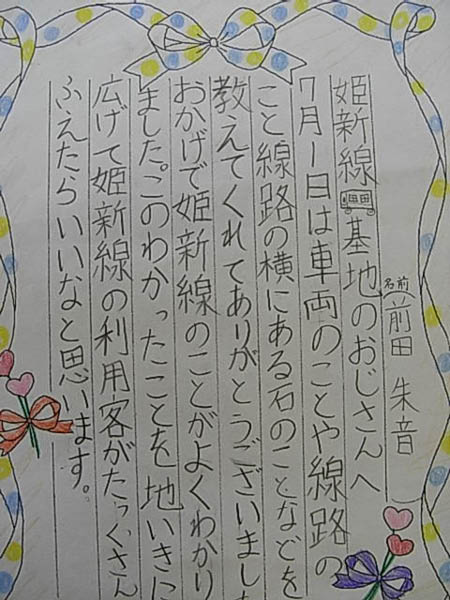 名前 前田 朱音
姫新線基地のおじさんへ
7月1日は車両のことや線路の
こと線路の横にある石のことなどを
教えてくれてありがとうございました
おかげで姫新線のことがよくわかり
ました。このわかったことを地いきに
広げて姫新線の利用客がたくさん
ふえたらいいなと思います。